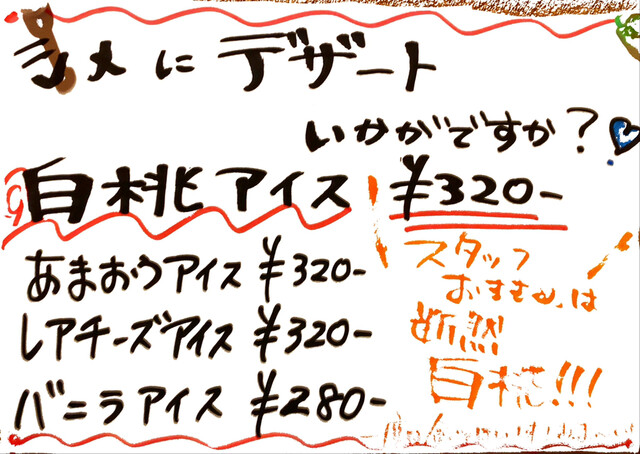 シメに デザート
いかがですか?
白桃アイス ¥320-
あまおうアイス ¥320-
レアチーズアイス ¥320-
バニラアイス ¥280-
スタッフ
おすすめは
断然
白桃!!!